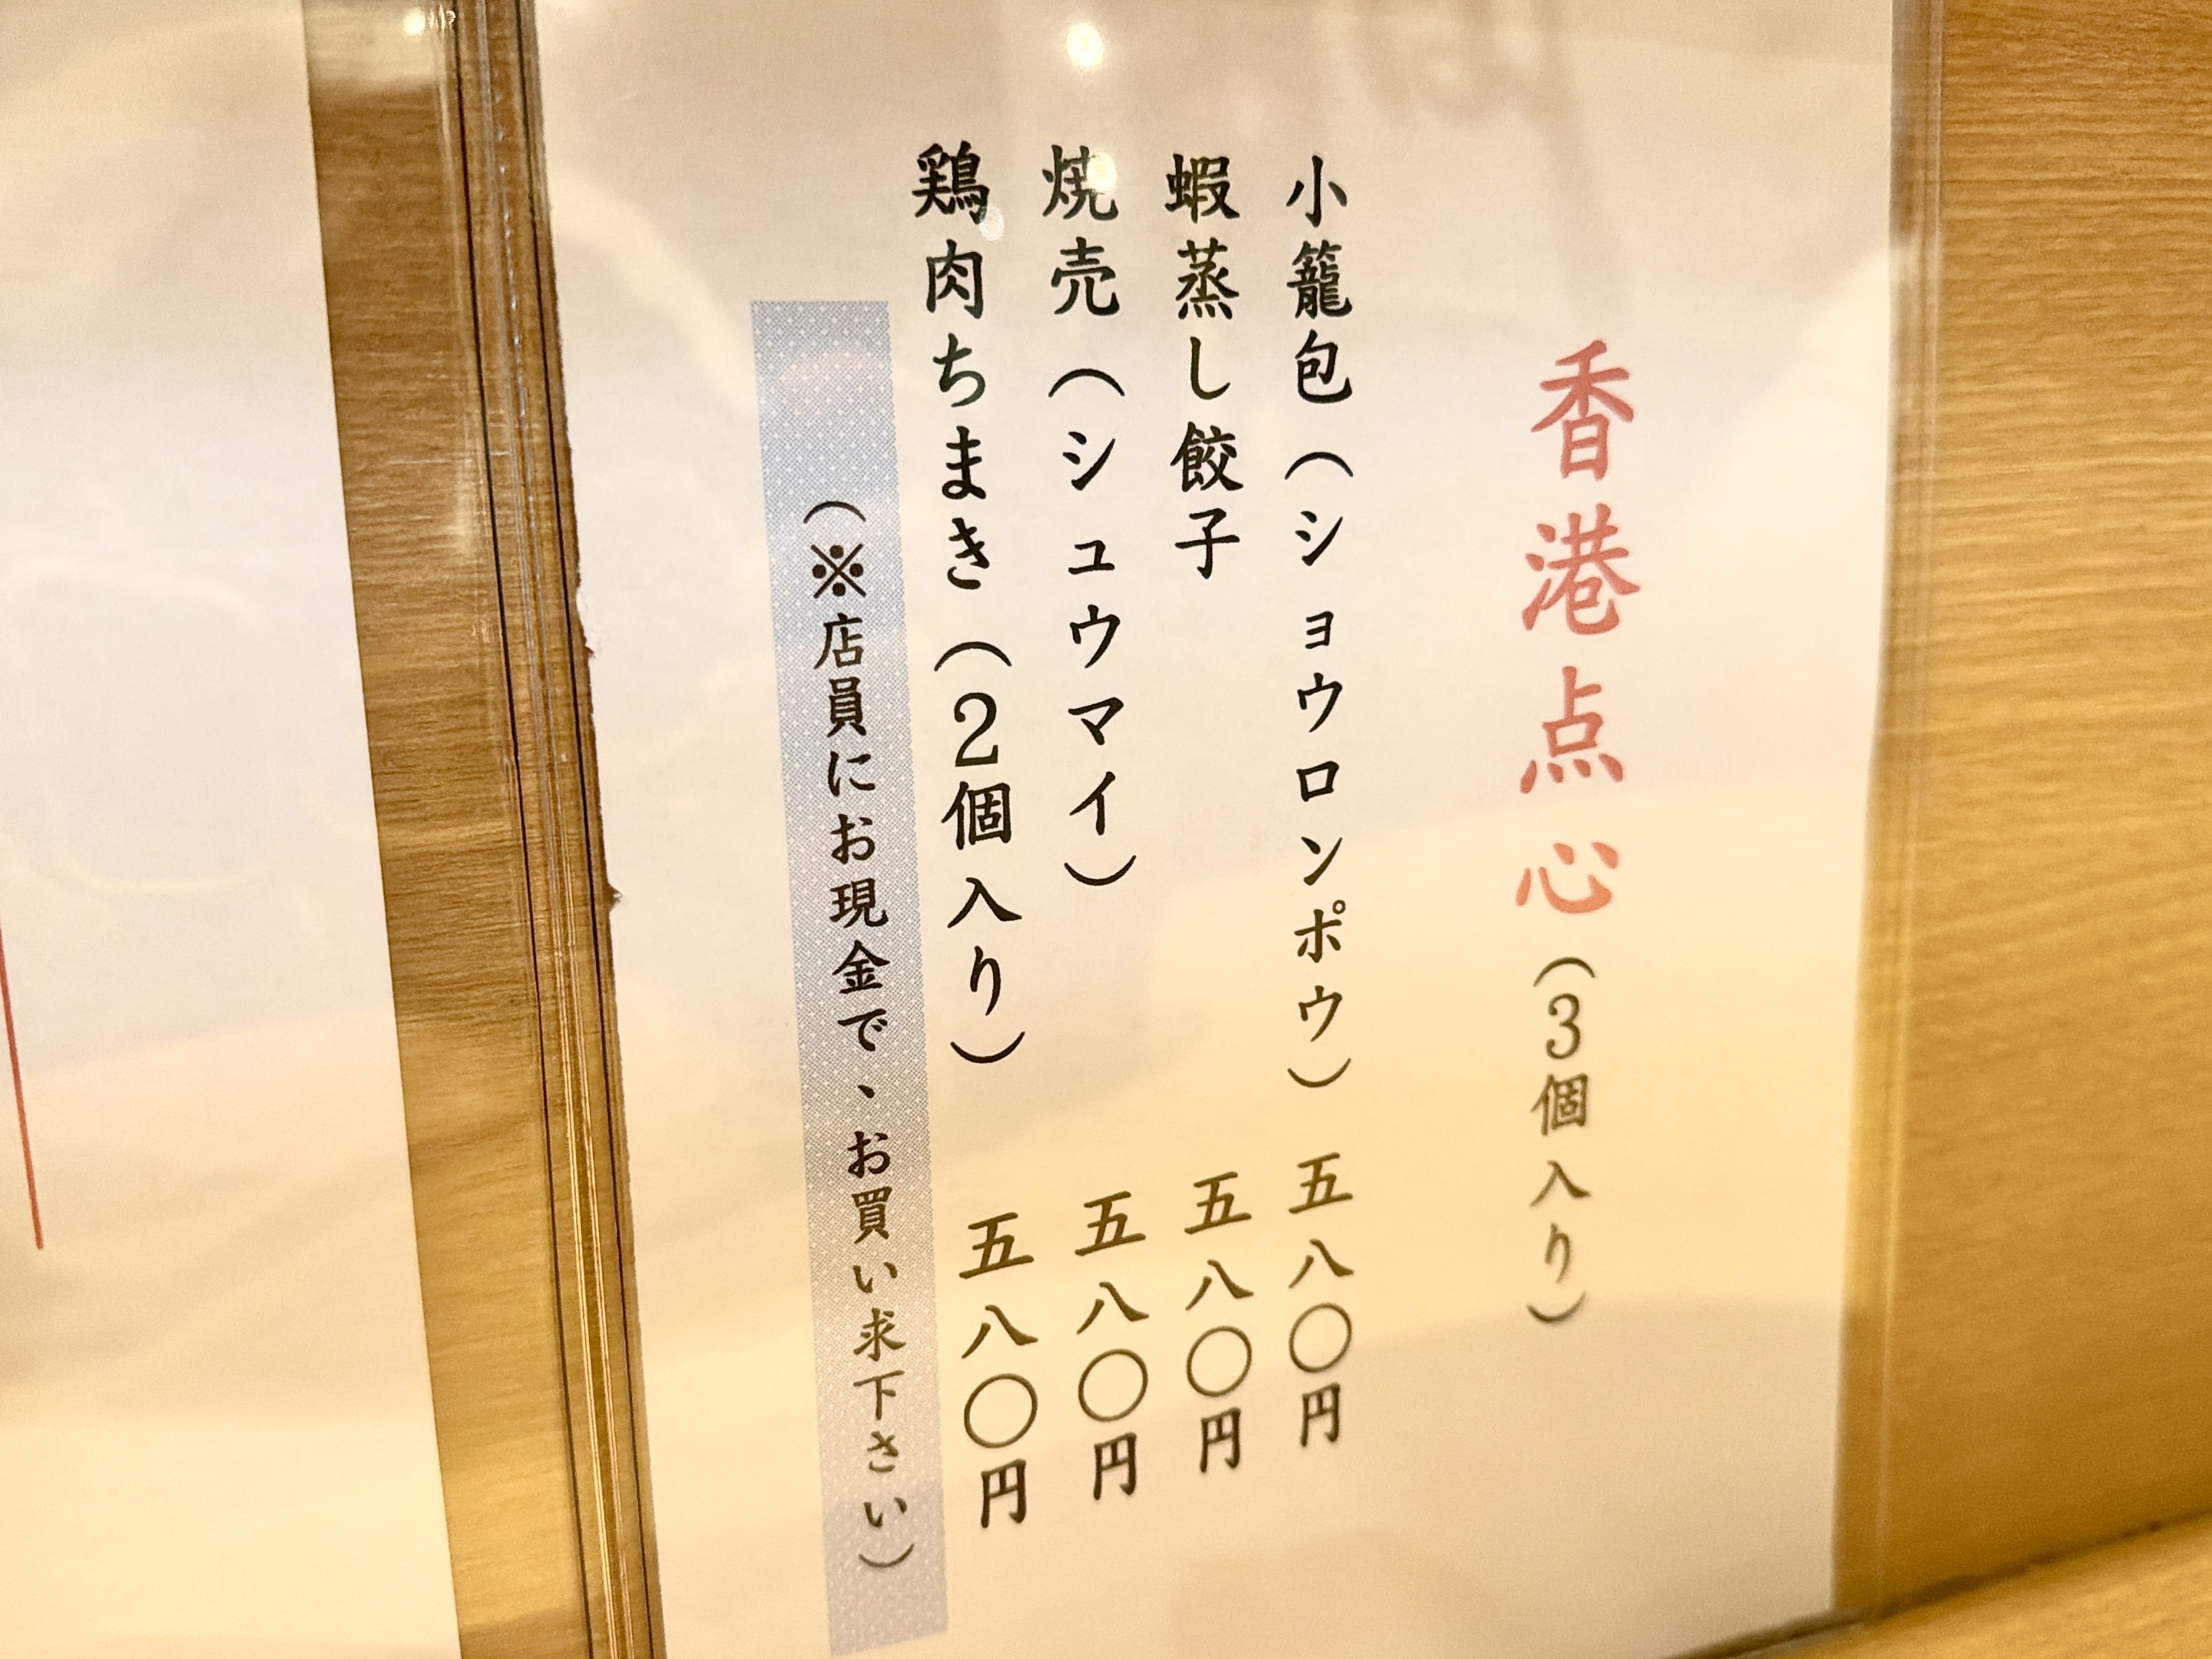 香港点心(3個入り)
小籠包(ショウロンポウ) 五八〇円
蝦蒸し餃子 五八〇円
焼売(シュウマイ) 五八〇円
鶏肉ちまき(2個入り) 五八〇円
(※店員にお現金で、お買い求下さい)